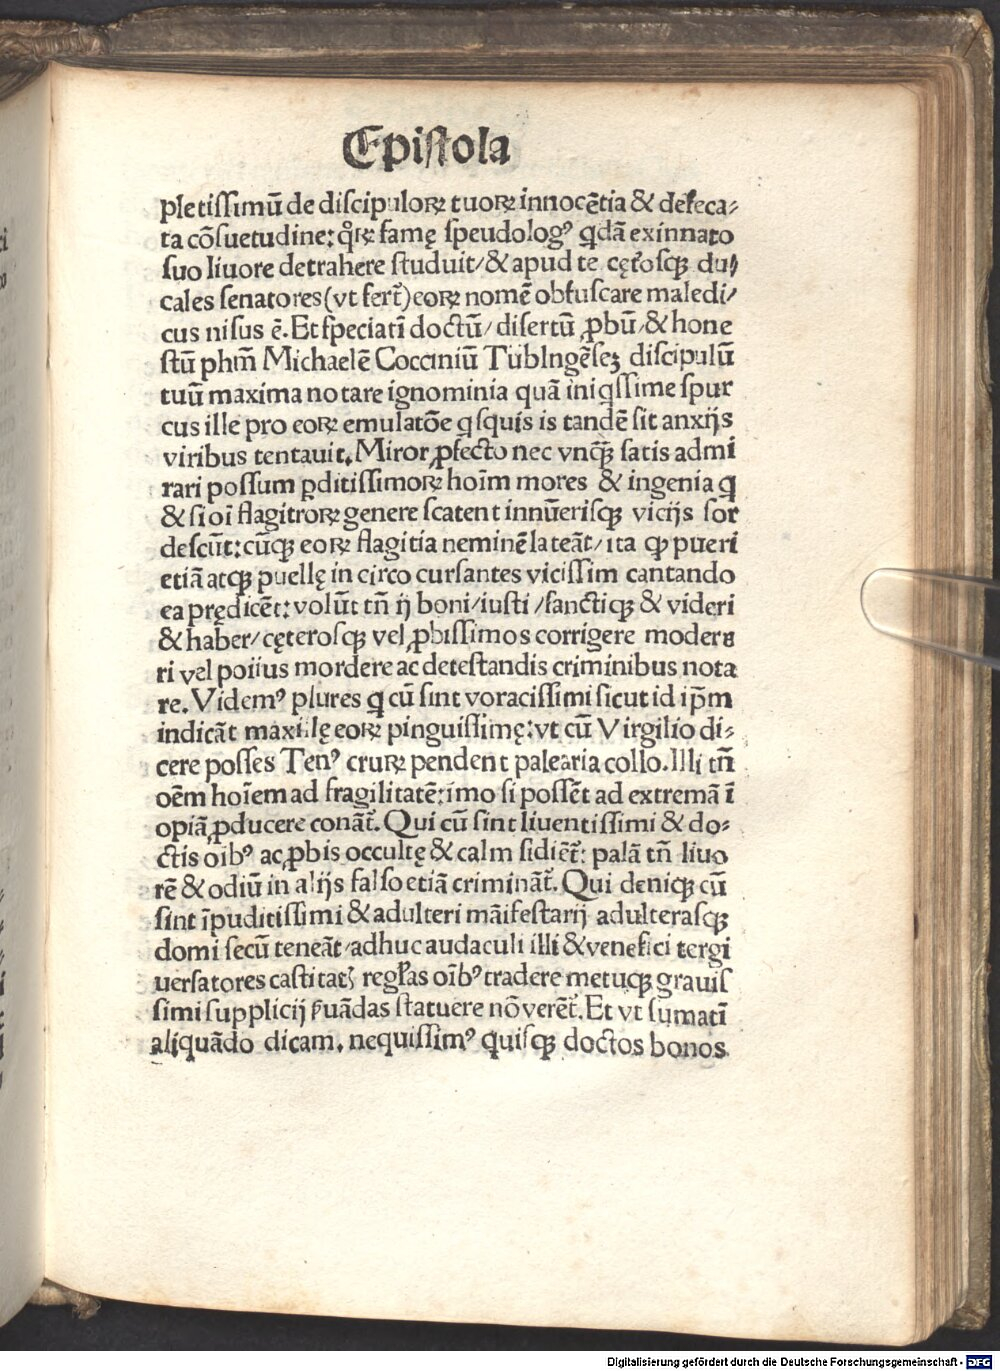 Epistola
pletissimū de discipuloꝝ tuoꝝ innocētia & defeca⸗
ta cōsuetudine: qͦꝝ famę speudologꝰ qdā exinnato
suo liuore detrahere studuit/ & apud te cęt̄osqꝫ du/
cales senatores (vt fert̄) eoꝝ nomē obfuscare maledi/
cus nisus ē. Et speciatī doctū/ disertū ꝓbū/ & hone
stū phm̄ Michaelē Coccıniū Tūblngēseꝫ discipulū
tuū maxima notare ignominia quā iniqssime spur
cus ille pro eoꝝ emulatōe qsquis is tandē sit anxijs
viribus tentauit. Miror ꝓfecto nec vnqꝫ̄ satis admi
rari possum ꝑditissimoꝝ hoīm mores & ingenia q
& si oī flagitroꝝ genere scatent innūerisqꝫ vicijs sor
descūt: cūqꝫ eoꝝ flagitia neminē lateāt/ ita qꝫ pueri
etiā atqꝫ puellę in circo cursantes vicissim cantando
ea prędicēt: volūt tn̄ ij boni/ iusti/ sanctiqꝫ & videri
& haber/ cęterosqꝫ vel ꝓbissimos corrigere modera
ri vel poiius mordere ac detestandis criminibus nota
re. Videmꝰ plures q cū sint voracissimi sicut id ip̄m
indicāt maxillę eoꝝ pinguissimę: vt cū Virgilio di⸗
cere posses Tenꝰ cruꝝ pendent palearia collo. Illi tn̄
oēm hoīem ad fragilitatē: imo si possēt ad extremā ī
opiā ꝓducere conāt̄. Qui cū sint liuentissimi & do⸗
ctis oībꝰ ac ꝓbis occultę & calm sidiēt̄: palā tn̄ liuo
rē & odiū in alijs falso etiā crimināt̄. Qui deniqꝫ cū
sint īpuditissimi & adulteri māifestarij adulterasqꝫ
domi secū teneāt/ adhuc audaculi illi & venefici tergi
uersatores castitatꝭ regl̄as oībꝰ tradere metuqꝫ grauis
simi supplicij ꝓuādas statuere nō verēt̄. Et vt sumatī
aliquādo dicam. nequissimꝰ quisqꝫ doctos bonos
Digitalisierung gefördert durch die Deutsche Forschungsgemeinschaft - DFG